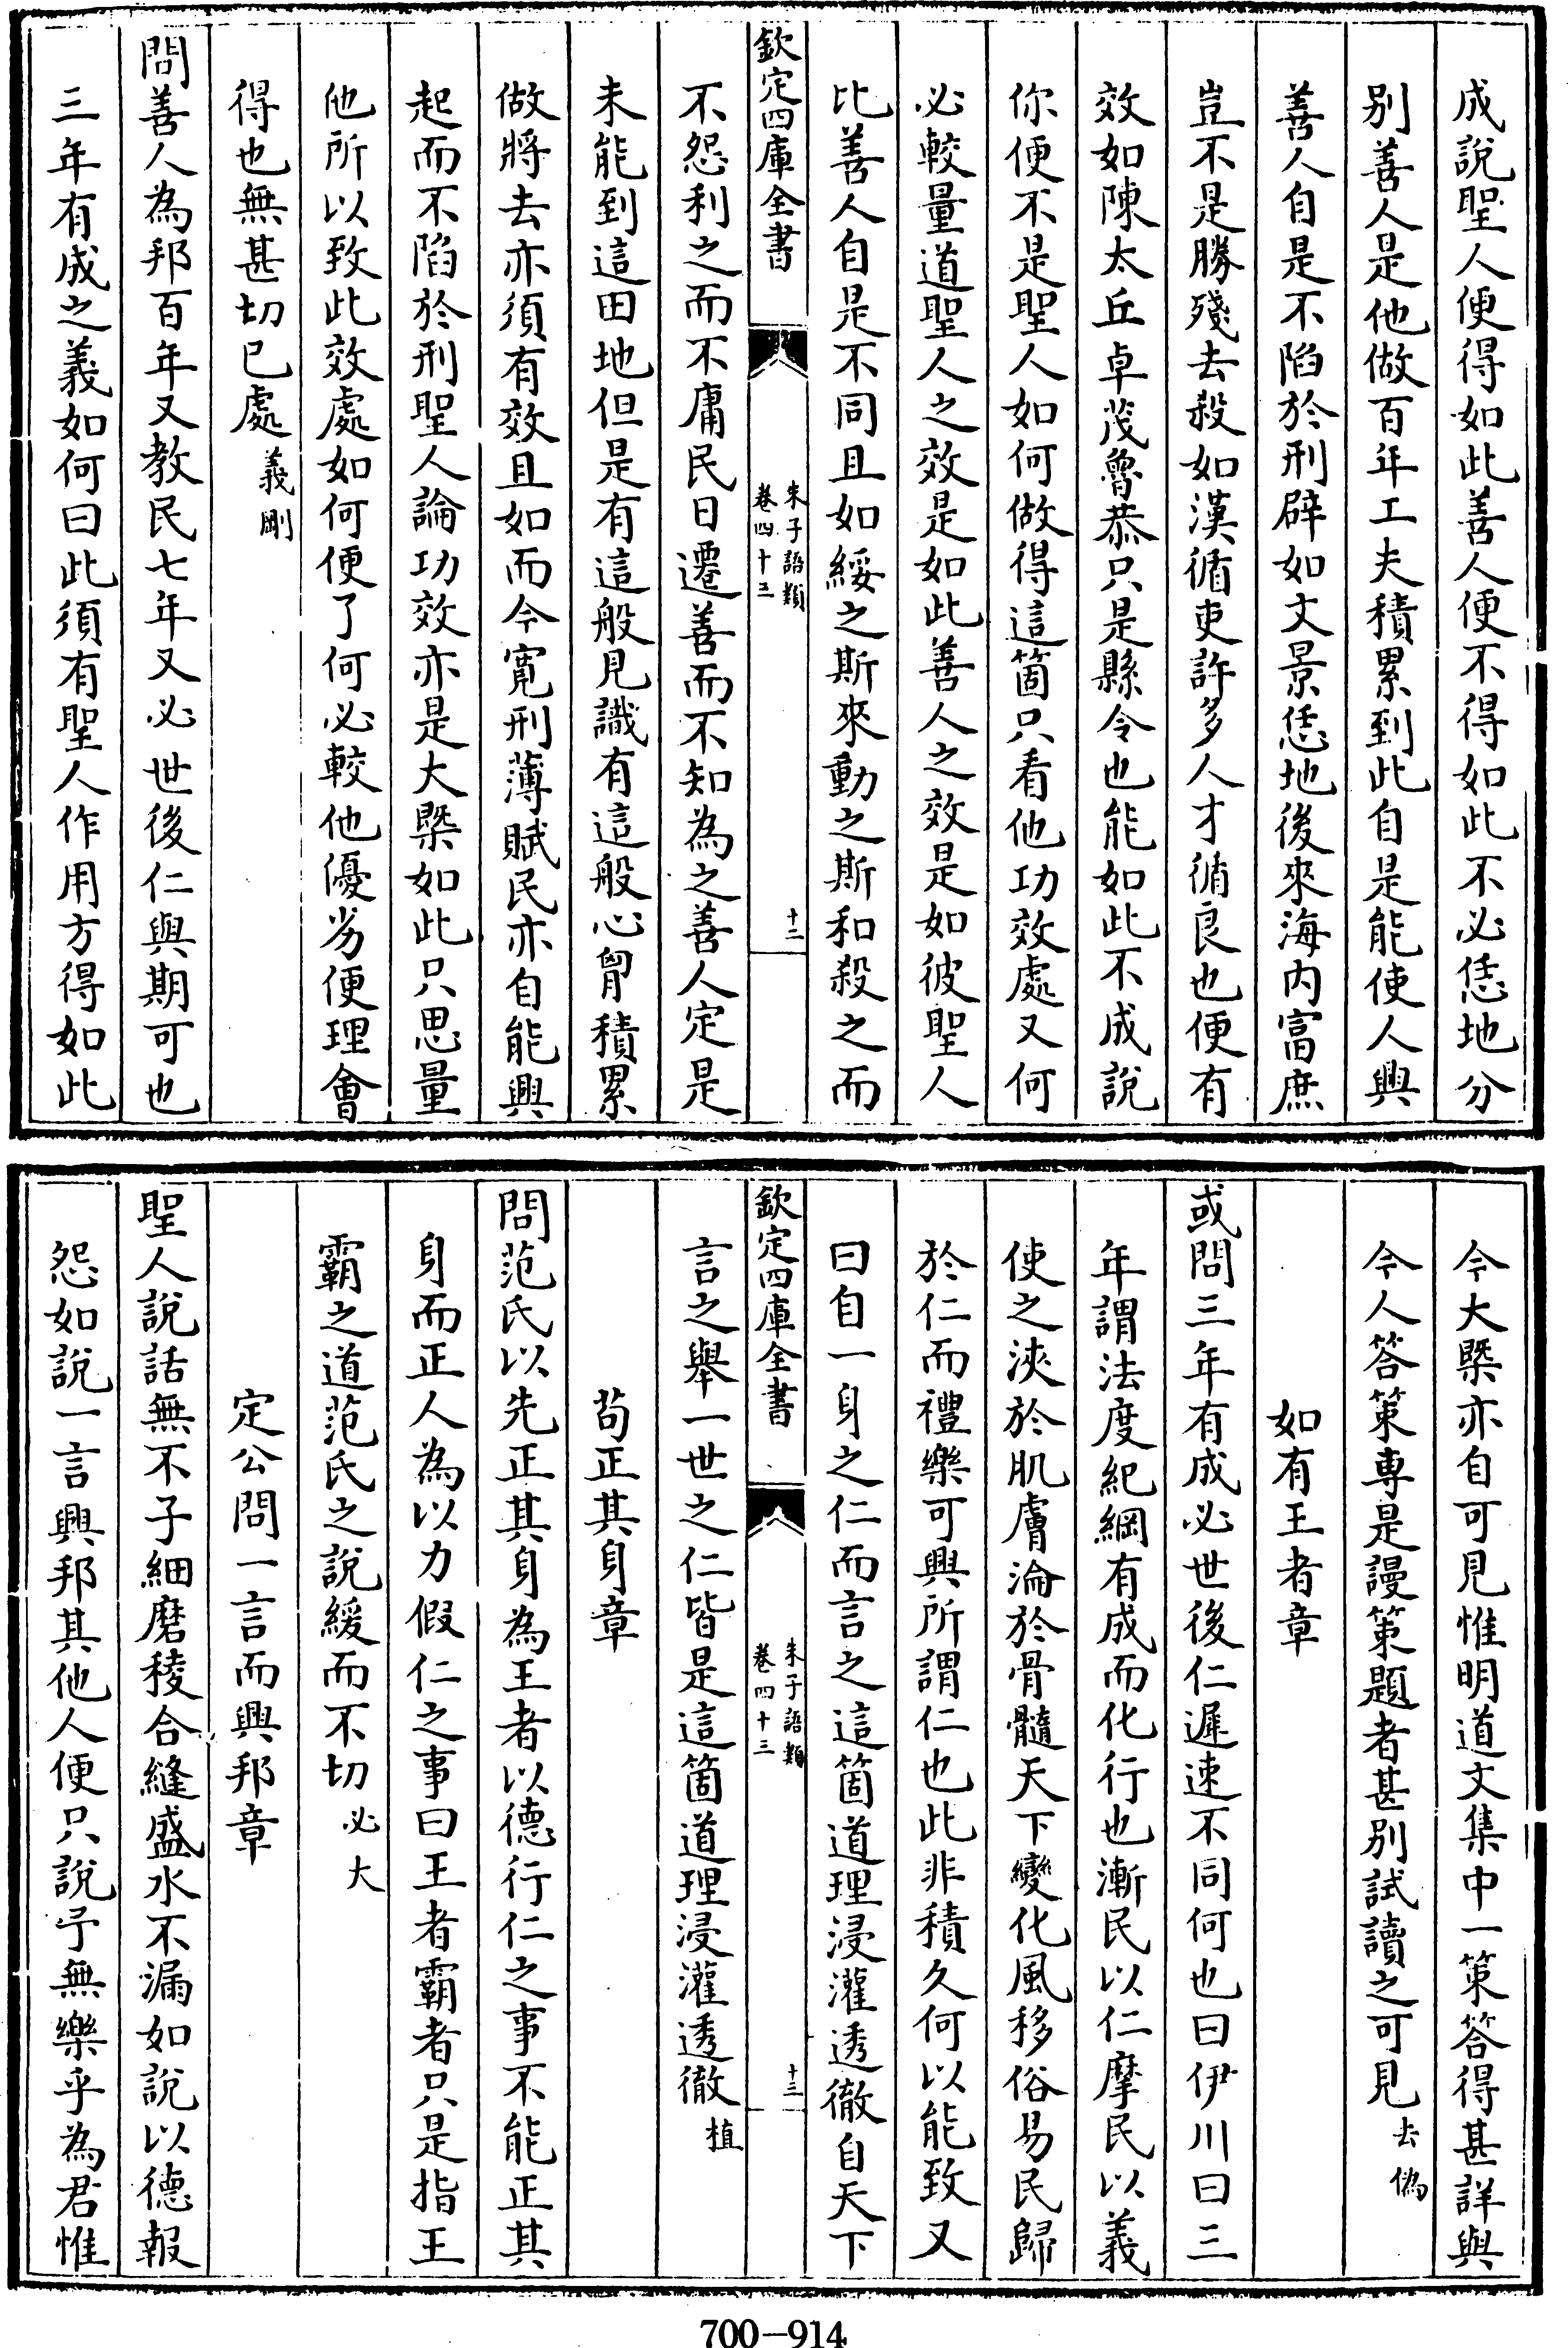 成說聖人便得如此善人便不得如此不必恁地分
别善人是他做百年工夫積累到此自是能使人興
善人自是不陷於刑辟如文景恁地後來海内富庶
豈不是勝殘去殺如漢循吏許多人才循良也便有
效如陳太丘卓茂魯恭只是縣令也能如此不成說
你便不是聖人如何做得這箇只看他功效處又何
必較量道聖人之效是如此善人之效是如彼聖人
比善人自是不同且如綏之斯來動之斯和殺之而
欽定四庫全書
朱子語類
卷四十三
十二
不怨利之而不庸民日遷善而不知為之善人定是
未能到這田地但是有這般見識有這般心胷積累
做將去亦須有效且如而今寛刑薄賦民亦自能興
起而不陷於刑聖人論功效亦是大槩如此只思量
他所以致此效處如何便了何必較他優劣便理會
得也無甚切已處義剛
問善人為邦百年又教民七年又必世後仁與期可也
三年有成之義如何曰此須有聖人作用方得如此
今大槩亦自可見惟明道文集中一策答得甚詳與
今人答策專是謾策題者甚别試讀之可見去偽
如有王者章
或問三年有成必世後仁遲速不同何也曰伊川曰三
年謂法度紀綱有成而化行也漸民以仁摩民以義
使之浹於肌膚淪於骨髓天下變化風移俗易民歸
於仁而禮樂可興所謂仁也此非積久何以能致又
曰自一身之仁而言之這箇道理浸灌透徹自天下
欽定四庫全書
朱子語類
卷四十三
十三
言之舉一世之仁皆是這箇道理浸灌透徹植
苟正其身章
問范氏以先正其身為王者以德行仁之事不能正其
身而正人為以力假仁之事曰王者霸者只是指王
霸之道范氏之說緩而不切必大
定公問一言而興邦章
聖人說話無不子細磨稜合縫盛水不漏如說以德報
怨如說一言興邦其他人便只說予無樂乎為君惟
700-914